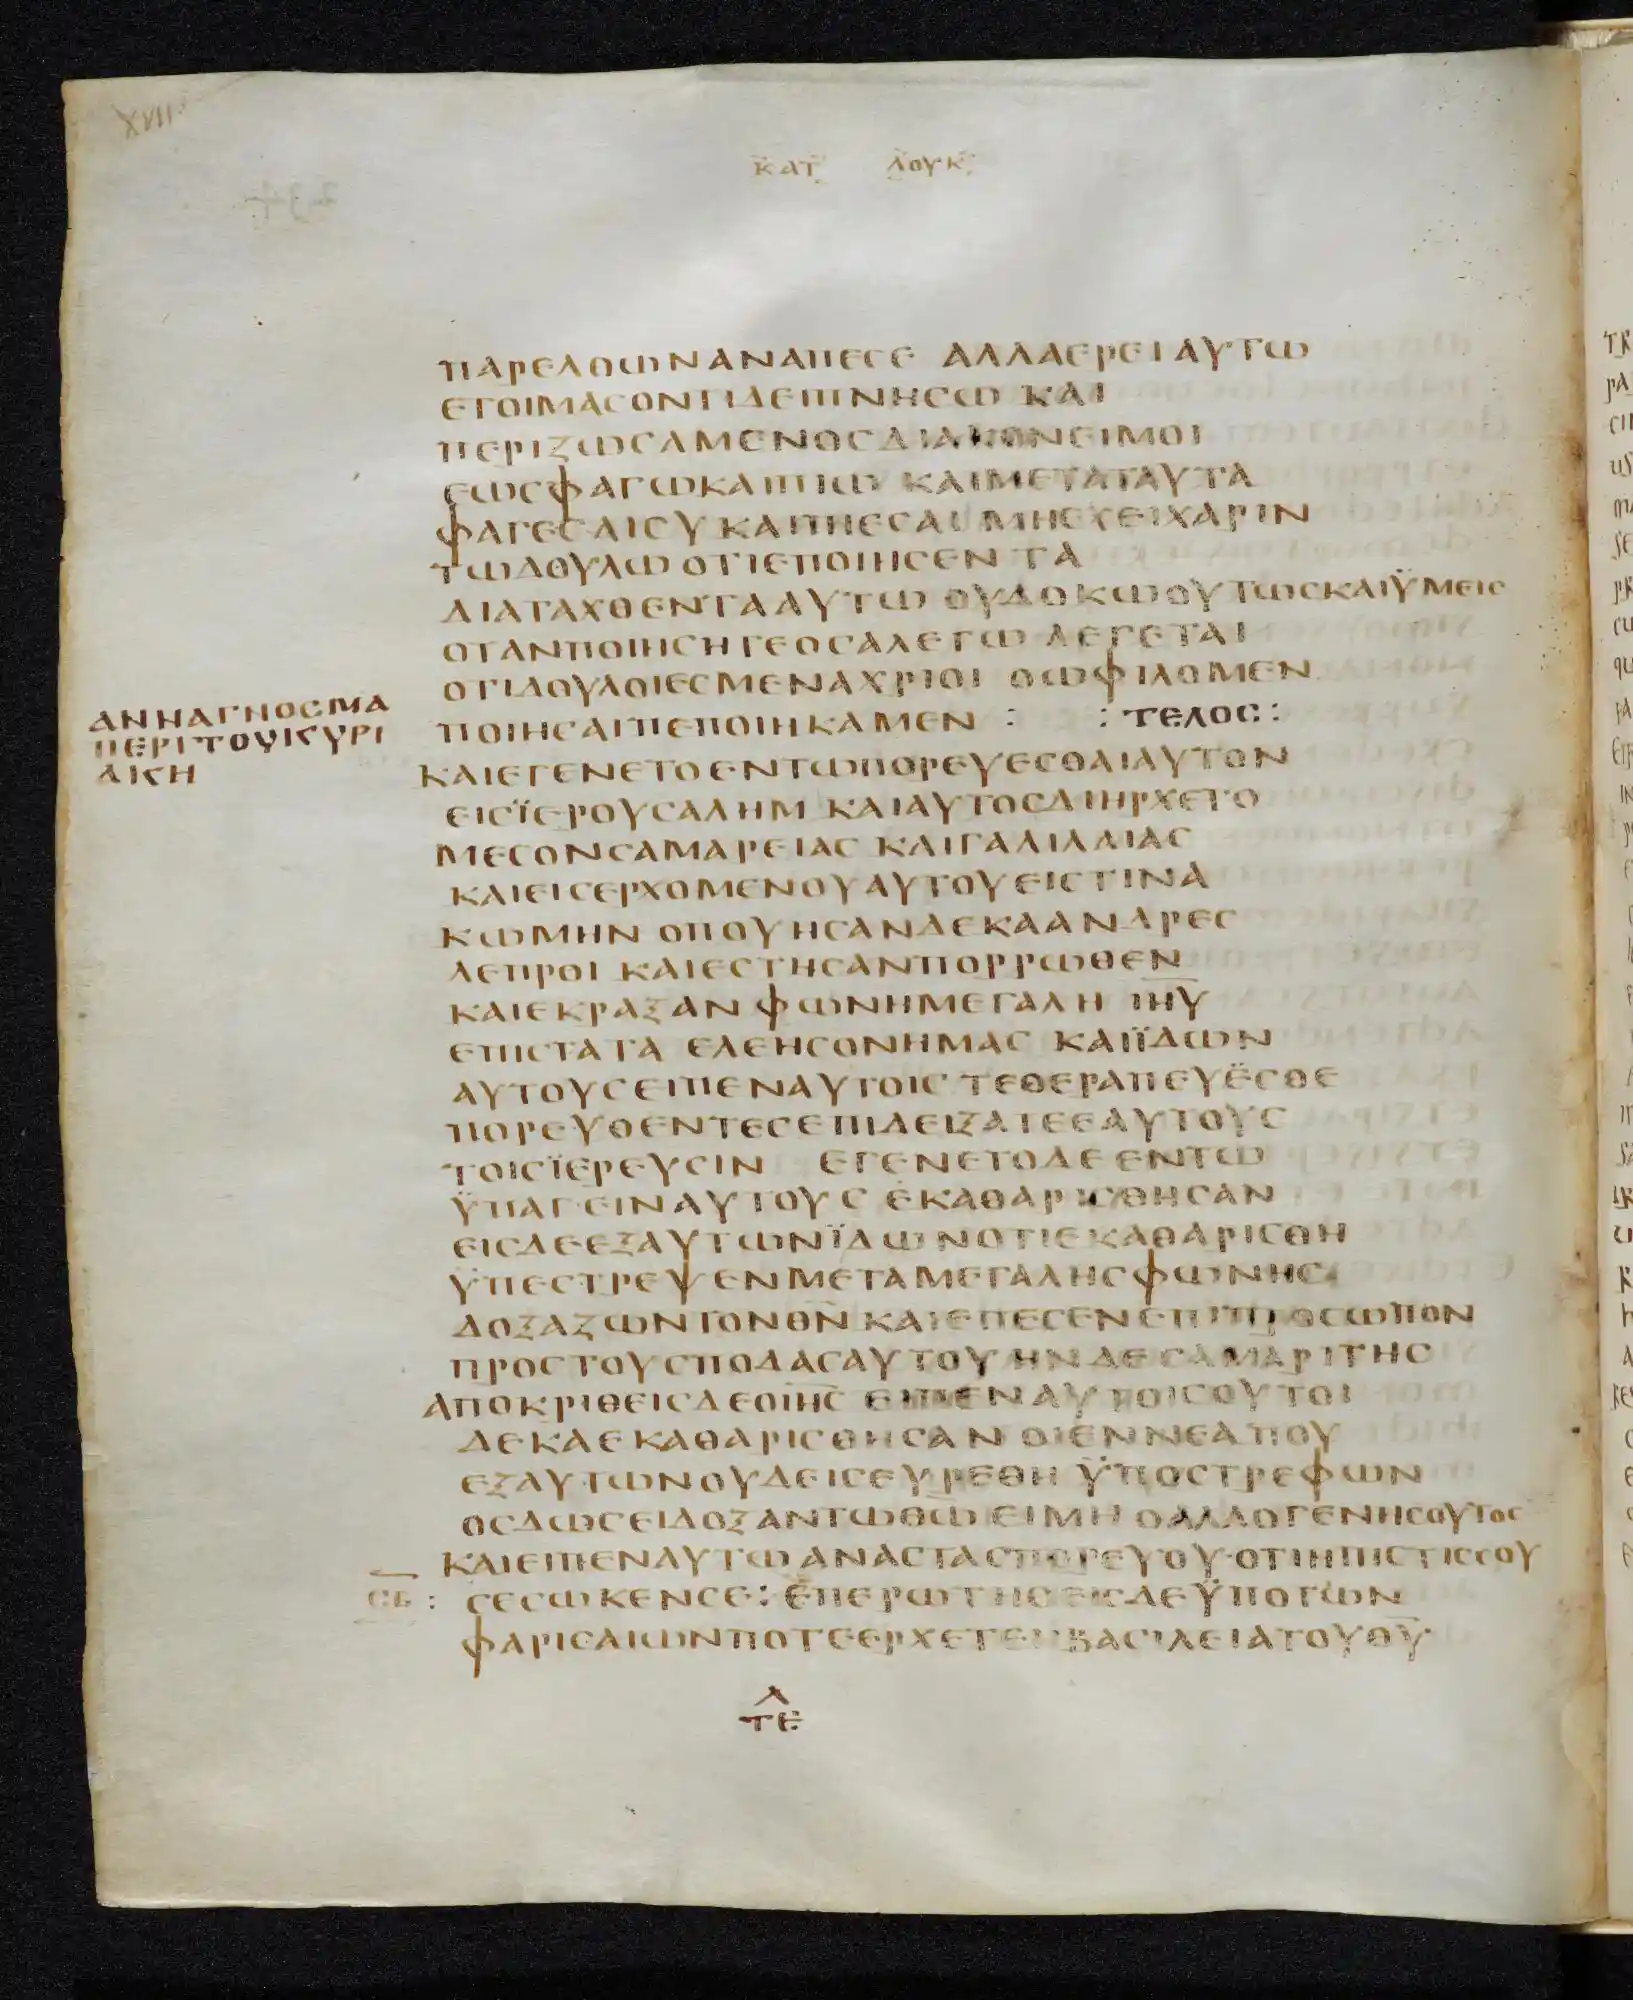 XVII
ΚΑΤ ΛΟΥΚ
ΠΑΡΕΛΘΩΝΑΝΑΠΕСΕ ΑΛΛΑΕΡΕΙΑΥΤΩ
ΕΤΟΙΜΑСΟΝΤΙΔΕΙΠΝΗСΩ ΚΑΙ
ΠΕΡΙΖΩСΑΜΕΝΟСΔΙΑΚΟΝΕΙΜΟΙ
ΕΩСΦΑΓΩΚΑΙΠΙΩ ΚΑΙΜΕΤΑΤΑΥΤΑ
ΦΑΓΕСΑΙСΥΚΑΙΠΙΕСΑΙ ΜΗΕΧΕΙΧΑΡΙΝ
ΤΩΔΟΥΛΩΟΤΙΕΠΟΙΗСΕΝ ΤΑ
ΔΙΑΤΑΧΘΕΝΤΑΑΥΤΩ ΟΥΔΟΚΩΟΥΤΩСΚΑΙΫΜΕΙС
ΟΤΑΝΠΟΙΗСΗΤΕΟСΑΛΕΓΩ ΛΕΓΕΤΑΙ
ΟΤΙΔΟΥΛΟΙΕСΜΕΝΑΧΡΙΟΙ ΟΩΦΙΛΟΜΕΝ
ΠΟΙΗСΑΙΠΕΠΟΙΗΚΑΜΕΝ : : ΤΕΛΟС:
ΑΝΝΑΓΝΟСΜΑ
ΠΕΡΙΤΟΥΚΥΡΙ
ΑΚΗ
ΚΑΙΕΓΕΝΕΤΟΕΝΤΩΠΟΡΕΥΕСΘΑΙΑΥΤΟΝ
ΕΙСΪΕΡΟΥСΑΛΗΜ ΚΑΙΑΥΤΟСΔΙΗΡΧΕΤΟ
ΜΕСΟΝСΑΜΑΡΕΙΑС ΚΑΙΓΑΛΙΛΑΙΑС
ΚΑΙΕΙСΕΡΧΟΜΕΝΟΥΑΥΤΟΥΕΙСΤΙΝΑ
ΚΩΜΗΝ ΟΠΟΥΗСΑΝΔΕΚΑΑΝΔΡΕС
ΛΕΠΡΟΙ ΚΑΙΕСΤΗСΑΝΠΟΡΡΩΘΕΝ
ΚΑΙΕΚΡΑΞΑΝΦΩΝΗΜΕΓΑΛΗ ΙΗΥ
ΕΠΙСΤΑΤΑ ΕΛΕΗСΟΝΗΜΑС ΚΑΙΪΔΩΝ
ΑΥΤΟΥСΕΙΠΕΝΑΥΤΟΙС ΤΕΘΕΡΑΠΕΥΕСΘΕ
ΠΟΡΕΥΘΕΝΤΕСΕΠΙΔΕΙΞΑΤΕΕΑΥΤΟΥС
ΤΟΙСΪΕΡΕΥСΙΝ ΕΓΕΝΕΤΟΔΕΕΝΤΩ
ΫΠΑΓΕΙΝΑΥΤΟΥС ΕΚΑΘΑΡΙСΘΗСΑΝ
ΕΙСΔΕΕΞΑΥΤΩΝΪΔΩΝΟΤΙΕΚΑΘΑΡΙСΘΗ
ΫΠΕСΤΡΕΨΕΝΜΕΤΑΜΕΓΑΛΗСΦΩΝΗС
ΔΟΞΑΖΩΝΤΟΝΘΝ ΚΑΙΕΠΕСΕΝΕΠΙΠΡΟСΩΠΟΝ
ΠΡΟСΤΟΥСΠΟΔΑСΑΥΤΟΥ ΗΝΔΕСΑΜΑΡΙΤΗС
ΑΠΟΚΡΙΘΕΙСΔΕΟΙΗС ΕΙΠΕΝΑΥΤΟΙСΟΥΤΟΙ
ΔΕΚΑΕΚΑΘΑΡΙСΘΗСΑΝ ΟΙΕΝΝΕΑΠΟΥ
ΕΞΑΥΤΩΝΟΥΔΕΙСΕΥΡΕΘΗ ΫΠΟСΤΡΕΦΩΝ
ΟСΔΩСΕΙΔΟΞΑΝΤΩΘΩ ΕΙΜΗ ΟΑΛΛΟΓΕΝΗСΟΥΤΟС
ΚΑΙΕΙΠΕΝΑΥΤΩ ΑΝΑСΤΑСΠΟΡΕΥΟΥ·ΟΤΙΗΠΙСΤΙССΟΥ
СΒ : СΕСΩΚΕΝСΕ: ΕΠΕΡΩΤΗΘΕΙСΔΕΫΠΟΤΩΝ
ΦΑΡΙСΑΙΩΝΠΟΤΕΕΡΧΕΤΕΗΒΑСΙΛΕΙΑΤΟΥΘΥ
Λ
ΤΕ